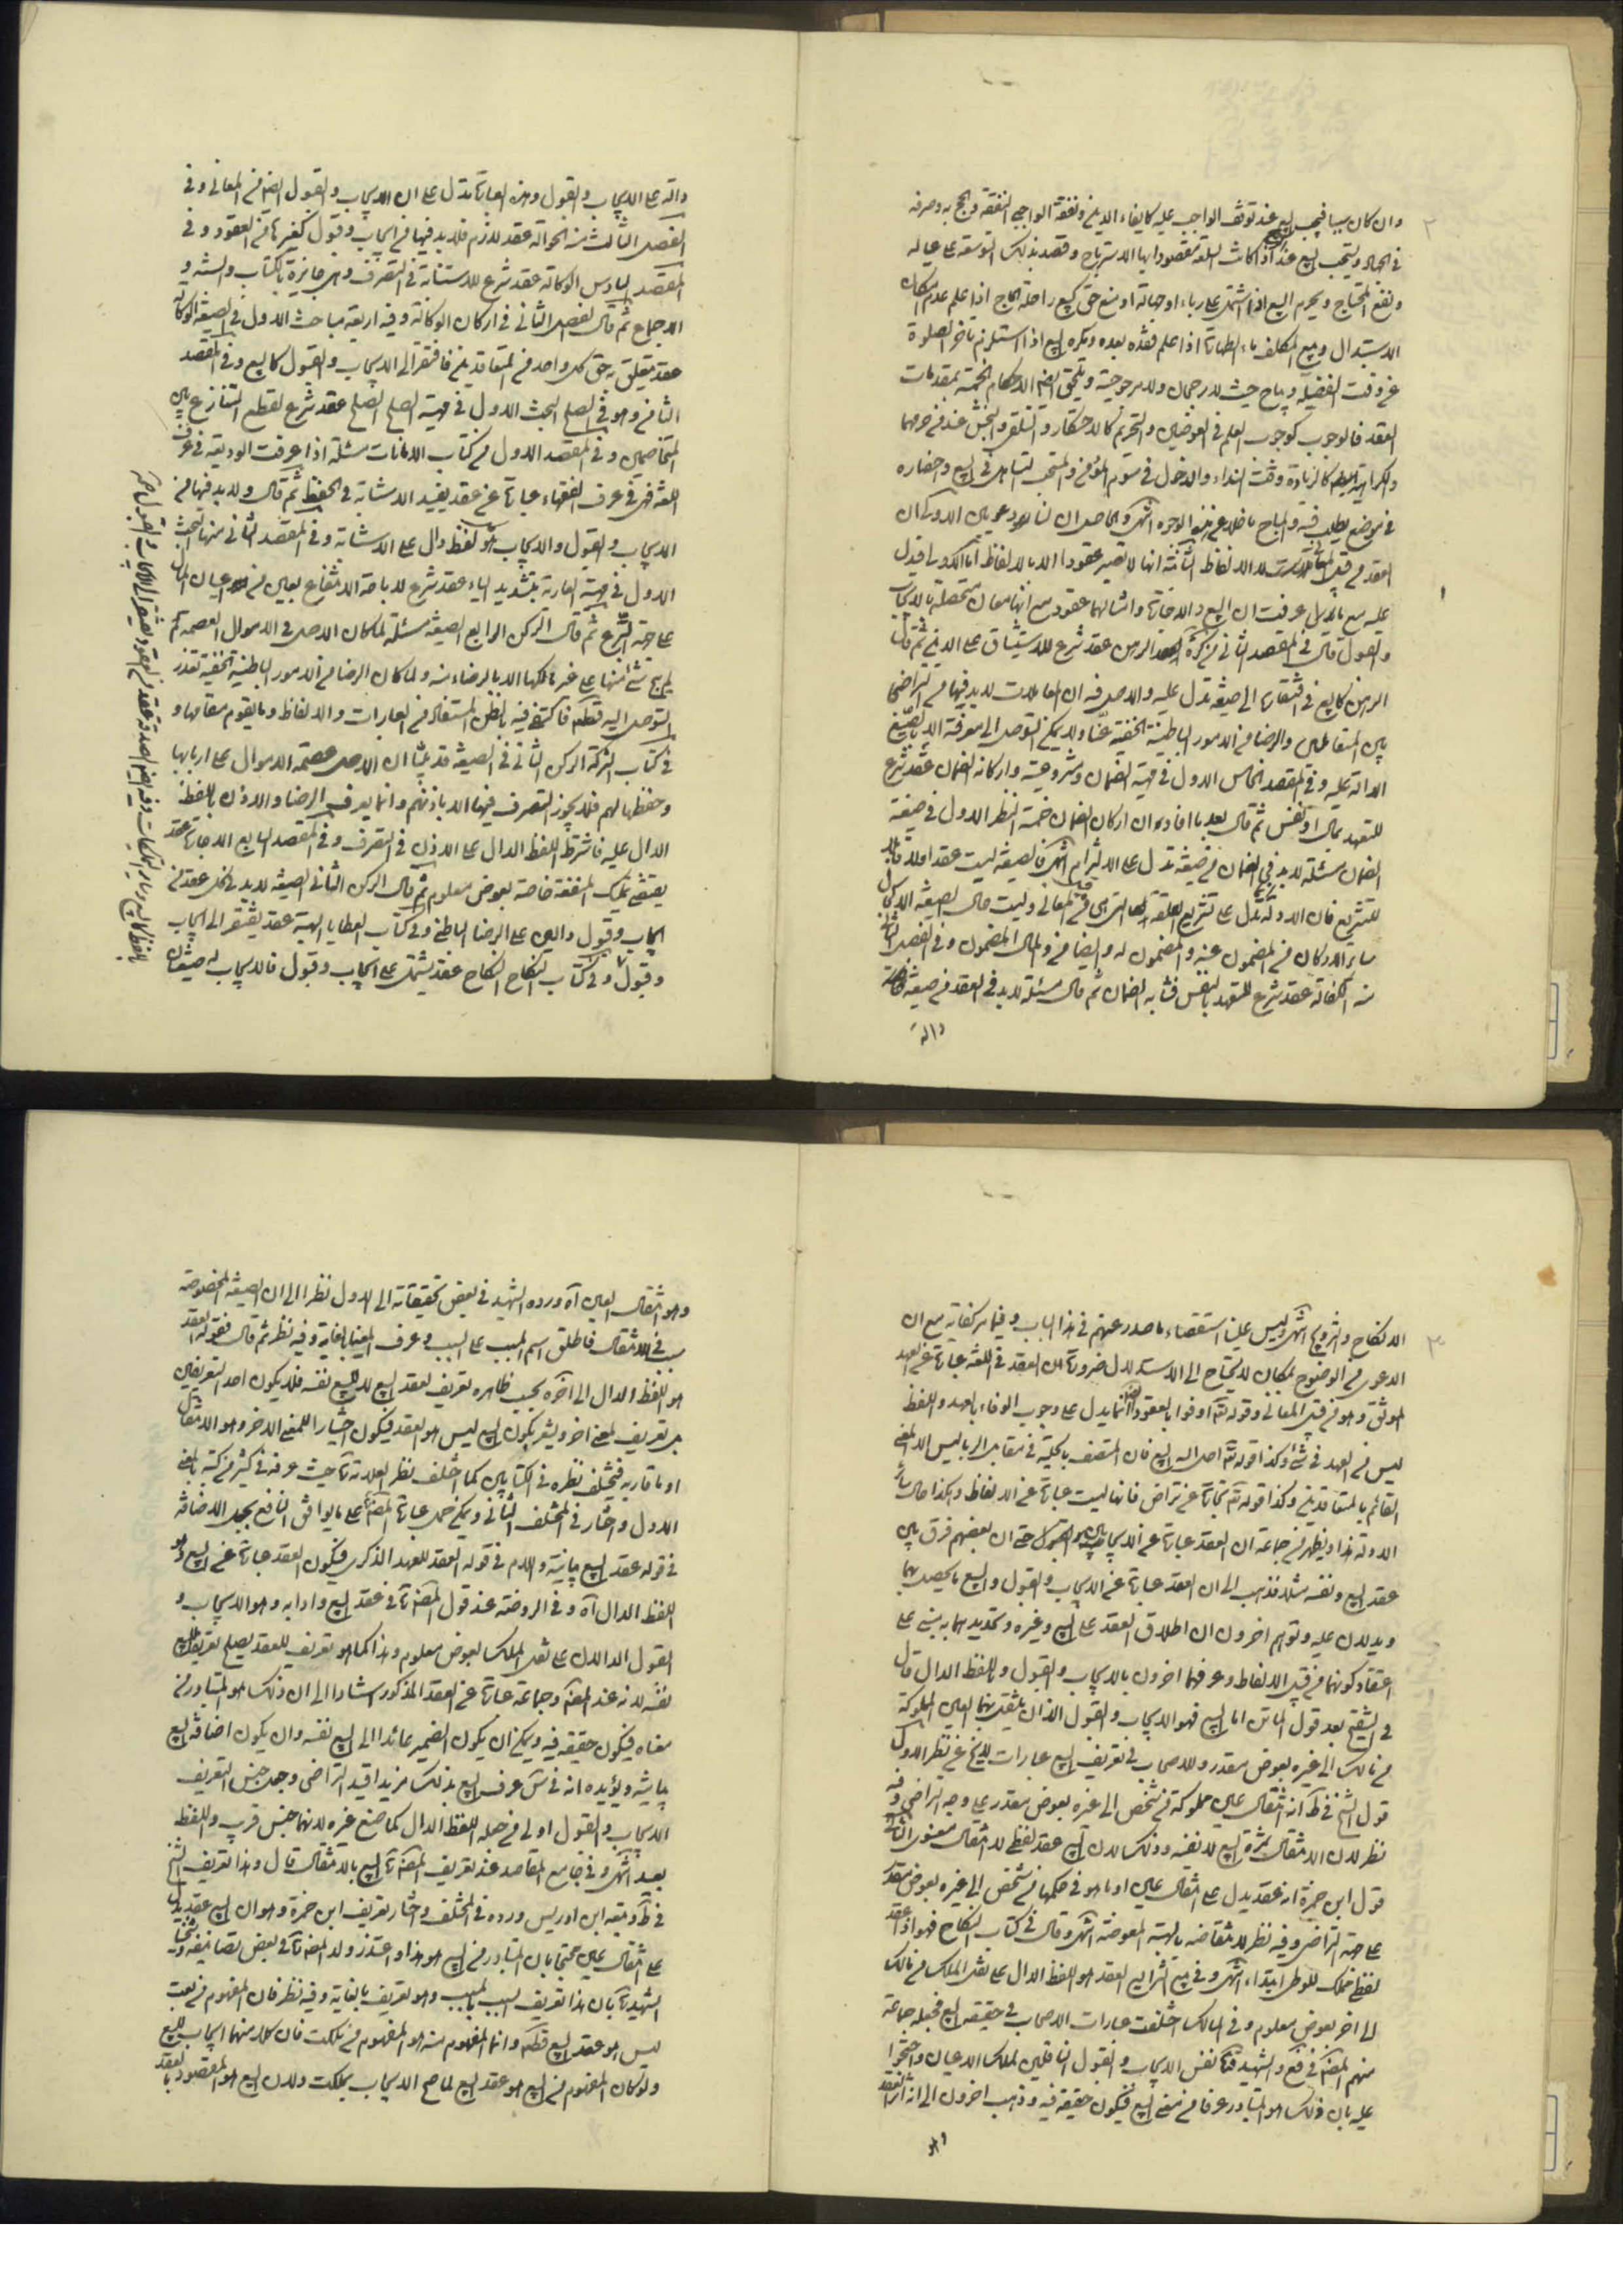 ٢
وان كان سببا فيجب البيع عند توقف الواجب عليه كايفاء الدين ونفقة الواجبي النفقة والحج به وصرفه
في الجهاد ويستحب البيع عند اذا كانت السلعة مقصودا بها الاسترباح وقصد بذلك التوسعة على عياله
ونفع المحتاج ويحرم البيع اذا اشتمل على رباء او جهالة او منع حق كبيع راحلة الحاج اذا علم عدم امكان
الاستبدال وبيع المكلف ماء الطهارة اذا علم فقده بعده ويكره البيع اذا استلزم تاخر الصلوة
عن وقت الفضيلة ويباح حيث لا رجحان ولا مرجوحية وتلحق ايضا الاحكام الخمسة بمقدمات
العقد فالوجوب كوجوب العلم في العوضين والتحريم كالاحتكار والتلقي والنجش عند من حرمهما
والكراهة كالزيادة وقت النداء والدخول في سوم المؤمن والمستحب التساهل في البيع واحضاره
في موضع يطلب فيه والمباح ما خلا عن هذه الوجوه انتهى والحاصل ان لنا دعويين الاولى ان
العقد من قبيل المعاني لا الالفاظ الثانية انها لا تصير عقودا الا بالالفاظ اما الاولى فيدل
عليه مع ما عرفت ان البيع والاجارة وامثالهما عقود مع انها معان متحصلة بالايجاب
والقبول قال في المقصد الثاني من التذكرة الرهن عقد شرع للاستيثاق على الدين ثم قال
الرهن كالبيع في افتقاره الى صيغة تدل عليه والاصل فيه ان المعاملات لا بد فيها من التراضي
بين المتعاملين والرضا من الامور الباطنية الخفية عنا ولا يمكن التوصل الى معرفته الا بالصيغ
الدالة عليه وفي المقصد الخامس الاول في مهية الضمان ومشروعيته واركانه الضمان عقد شرع
للتعهد بمال او نفس ثم قال بعد ما افاد ان اركان الضمان خمسة النظر الاول في صيغة
الضمان مسئلة لا بد في الضمان من صيغة تدل على الالتزام انتهى فالصيغة ليست عقدا
للتشريع فان الادلة تدل على تشريع العقد التي هي من قبيل المعاني وليست حال الصيغة الا كحال
ساير الاركان من المضمون عنه والمضمون له والضامن والمال المضمون وفي الفصل الثاني
منه الكفالة عقد شرع للتعهد بالنفس فشابه الضمان ثم قال مسئلة لا بد في العقد من صيغة
دالة
دالة على الايجاب والقبول وهذه العبارة تدل على ان الايجاب والقبول ايضا من المعاني وفي
الفصل الثالث منه الحوالة عقد لازم فلا بد فيها من ايجاب وقبول كغيرها من العقود وفي
المقصد السادس الوكالة عقد شرع للاستنابة في التصرف وهي جايزة بالكتاب والسنة و
الاجماع ثم قال الفصل الثاني في اركان الوكالة وفيه اربعة مباحث الاول في الصيغة الوكالة
عقد يتعلق به حق كل واحد من المتعاقدين فافتقر الى الايجاب والقبول كالبيع وفي المقصد
الثامن وهو في الصلح البحث الاول في مهية الصلح الصلح عقد شرع لقطع التنازع بين
المتخاصمين وفي المقصد الاول من كتاب الامانات مسئلة اذا عرفت الوديعة في عرف
اللغة فهي في عرف الفقهاء عبارة عن عقد يفيد الاستنابة في الحفظ ثم قال ولا بد فيها من
الايجاب والقبول والايجاب هو كل لفظ دال على الاستنابة وفي المقصد الثاني منها البحث
الاول في مهية العارية بتشديد الياء عقد شرع لاباحة الانتفاع بعين من اعيان المال
على جهة التبرع ثم قال الركن الرابع الصيغة مسئلة لما كان الاصل في الاموال العصمة لم
يبح شئ منها على غير مالكها الا بالرضاء منه ولما كان الرضا من الامور الباطنية الخفية تعذر
التوصل اليه قطعا فاكتفى فيه بالظن المستفاد من العبارات والالفاظ وما يقوم مقامها و
في كتاب الشركة الركن الثاني في الصيغة قد بينا ان الاصل عصمة الاموال على اربابها
وحفظها لهم فلا يجوز التصرف فيها الا باذنهم وانما يعرف الرضا والاذن باللفظ
الدال عليه فاشترط اللفظ الدال على الاذن في التصرف وفي المقصد السابع الاجارة عقد
يقتضي تمليك المنفعة خاصة بعوض معلوم ثم قال الركن الثاني الصيغة لا بد في كل عقد من
ايجاب وقبول دالين على الرضا الباطن وفي كتاب العطايا الهبة عقد يفتقر الى ايجاب
وقبول وفي كتاب النكاح النكاح عقد يشتمل على ايجاب وقبول فالايجاب له صيغتان
٣
الانكاح والتزويج انتهى وليس علينا استقصاء ما صدر عنهم في هذا الباب وفيما مر كفاية مع ان
الدعوى من الوضوح بمكان لا يحتاج الى الاستدلال ضرورة ان العقد في اللغة عبارة عن العهد
الموثق وهو من قبيل المعاني وقوله تع اوفوا بالعقود انما يدل على وجوب الوفاء بالعهد واللفظ
ليس من العهد في شئ وكذا قوله تع احل الله البيع فان المتصف بالحلية في مقابل الربا ليس الا المعنى
القائم بالمتعاقدين وكذا قوله تع تجارة عن تراض فانها ليست عبارة عن الالفاظ وهكذا حال ساير
الادلة هذا ويظهر من جماعة ان العقد عبارة عن الايجاب والقبول حتى ان بعضهم فرق بين
عقد البيع ونفسه مثلا فذهب الى ان العقد عبارة عن الايجاب والقبول والبيع ما يحصل بهما
ويدلان عليه وتوهم اخرون ان اطلاق العقد على البيع وغيره وتحديدهما به مبني على
اعتقاد كونهما من قبيل الالفاظ وعرفهما اخرون بالايجاب والقبول وباللفظ الدال قال
في التنقيح بعد قول الماتن اما البيع فهو الايجاب والقبول اللذان ينتقل بهما العين المملوكة
من مالك الى غيره بعوض مقدر وللاصحاب في تعريف البيع عبارات لا يخ عن نظر الاول
قول الشيخ في ط انه انتقال عين مملوكة من شخص الى غيره بعوض مقدر على وجه التراضي وفيه
نظر لان الانتقال ثمرة البيع لا نفسه وذلك لان البيع عقد لفظي لا انتقال معنوي الثاني
قول ابن حمزة انه عقد يدل على انتقال عين او ما هو في حكمها من شخص الى غيره بعوض مقدر
على جهة التراضي وفيه نظر لانتقاضه بالهبة المعوضة انتهى وقال في كتاب النكاح فهو اذا عقد
لفظي مملك للوطى ابتداء انتهى وفي بيع الشرايع العقد هو اللفظ الدال على نقل الملك من مالك
الى اخر بعوض معلوم وفي المسالك اختلفت عبارات الاصحاب في حقيقة البيع فجعله جماعة
منهم المصنف في فع والشهيد نفس الايجاب والقبول الناقلين لملك الاعيان واحتجوا
عليه بان ذلك هو المتبادر عرفا من معنى البيع فيكون حقيقة فيه وذهب اخرون الى انه اثر العقد
وهو
وهو انتقال العين آه ورده الشهيد في بعض تحقيقاته الى الاول نظرا الى ان الصيغة المخصوصة
سبب في الانتقال فاطلق اسم المسبب على السبب وعرف المغيا بالغاية وفيه نظر ثم قال فقوله العقد
هو اللفظ الدال الى آخره بحسب ظاهره تعريف لعقد البيع لا للبيع نفسه فلا يكون احد التعريفين
بل تعريف لمعنى اخر ويشعر بكون البيع ليس هو العقد فيكون اختيارا للمعنى الاخر وهو الانتقال
او ما قاربه فيختلف نظره في الكتابين كما اختلف نظر العلامة حيث عرفه في كثير من كتبه بالمعنى
الاول واختار في المختلف الثاني ويمكن حمل عبارة المصنف على ما يوافق النافع بجعل الاضافة
في قوله عقد البيع بيانية واللام في قوله العقد للعهد الذكرى فيكون العقد عبارة عن البيع وهو
اللفظ الدال آه وفي الروضة عند قول المصنف في عقد البيع وادابه وهو الايجاب و
القبول الدالان على نقل الملك بعوض معلوم وهذا كما هو تعريف للعقد يصلح تعريفا للبيع
نفسه لانه عند المصنف وجماعة عبارة عن العقد المذكور استنادا الى ان ذلك هو المتبادر من
معناه فيكون حقيقة فيه ويمكن ان يكون الضمير عائدا الى البيع نفسه وان يكون اضافة البيع
بيانية ويؤيده انه في س عرف البيع بذلك مزيدا قيد التراضي وجعل جنس التعريف
الايجاب والقبول اولى من جعله اللفظ الدال كما صنع غيره لانهما جنس قريب واللفظ
بعيد انتهى وفي جامع المقاصد عند تعريف المصنف البيع بالانتقال قال وهذا تعريف الشيخ
في ط وتبعه ابن ادريس ورده في المختلف واختار تعريف ابن حمزة وهو ان البيع عقد يدل
على انتقال عين محتجا بان المتبادر من البيع هو هذا واعتذر ولد المصنف في بعض تصانيفه
الشهيد بان هذا تعريف للسبب بالمسبب وهو تعريف بالغاية وفيه نظر فان المفهوم من بعت
ليس هو عقد البيع قطعا وانما المفهوم منه هو المفهوم من ملكت فان كلا منهما ايجاب للبيع
ولو كان المفهوم من البيع هو عقد البيع لما صح الايجاب بملكت ولان البيع هو المقصود بالعقد